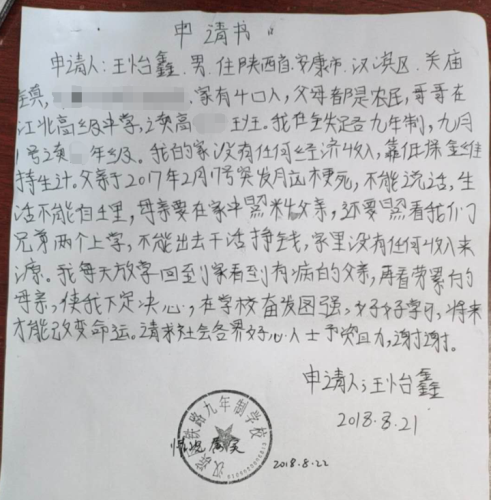 申请书
申请人:王怡鑫.男.住陕西省.安康市.汉滨区.关庙
镇, 家有4口人,父母都是农民,哥哥在
江北高级中学,读高 班。我在铁路九年制,九月
1号读 年级。我的家没有任何经济收入,靠低保金维
持生计。父亲于2017年2月17号突发脑梗死,不能说话,生
活不能自理,母亲要在家中照料父亲,还要照看我们
兄弟两个上学,不能出去干活挣钱,家里没有任何收入来
源。我每天放学回到家看到有病的父亲,再看劳累的
母亲,使我下定决心,在学校奋发图强,好好学习,将来
才能改变命运。请求社会各界好心人士予资助,谢谢。
申请人:王怡鑫
2018.8.21
铁路九年制学校
情况属实
2018.8.22